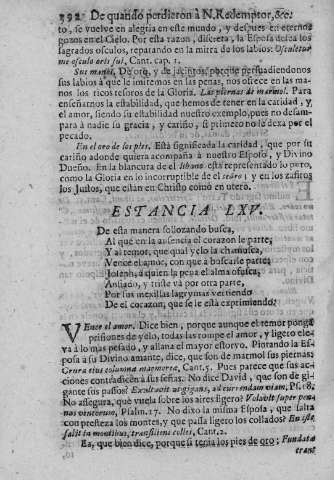 392 De quando perdieron à N. Redemptor, &c.
to, se vuelve en alegria en este mundo, y despues en eternos
gozos en el Cielo. Por esta razon, discreta, la Esposa desea los
sagrados osculos, reparando en la mitra de los labios: Osculetur
me osculo oris sui, Cant. cap. 1.
Sus manos, De oro, y de jacintos, porque persuadiendonos
sus labios à que le imitemos en las penas, nos ofrece en las ma-
nos los ricos tesoros de la Gloria. Las piernas de marmol. Para
enseñarnos la estabilidad, que hemos de tener en la caridad, y
el amor, siendo su estabilidad nuestro exemplo, pues no desam-
para à nadie su gracia, y cariño, si primero no la dexa por el
pecado.
En el oro de los pies. Està significada la caridad, que por su
cariño adonde quiera acompaña à nuestro Esposo, y Divino
Dueño. En la blancura de el Libano està representado lo puro,
como la Gloria en lo incorruptible de el cedro; y en los zafiros
los Justos, que estàn en Christo como en utero.
ESTANCIA LXV.
De esta manera sollozando busca,
Al que en la ausencia el corazon le parte;
Y al temor, que qual yelo la chamusca,
Vence el amor, con que à buscarle parte;
Joseph, à quien la pena el alma ofusca,
Ansiado, y triste và por otra parte,
Por sus mexillas lagrymas vertiendo
De el corazon, que se le està exprimiendo.
Vence el amor. Dice bien, porque aunque el temor ponga
prisiones de yelo, todas las rompe el amor, y ligero ele-
va à lo mas pesado, y allana el mayor estorvo. Pintando la Es-
posa à su Divino amante, dice, que son de marmol sus piernas:
Crura eius columnæ marmoreæ, Cant. 5. Pues parece que sus ac-
ciones contradicen à las señas. No dice David, que son de gi-
gante sus pasos? Exultavit ut gigans, ad currendam viam, Ps. 18.
No assegura, què vuela sobre los aires ligero? Volavit super pen-
nas ventorum, Psalm. 17. No dixo la misma Esposa, que salta
con presteza los montes, y que passa ligero los collados? En iste
salit in montibus, transiliens colles, Cant. 2.
Ea, que bien dice, porque si tenia los pies de oro: Fundatæ